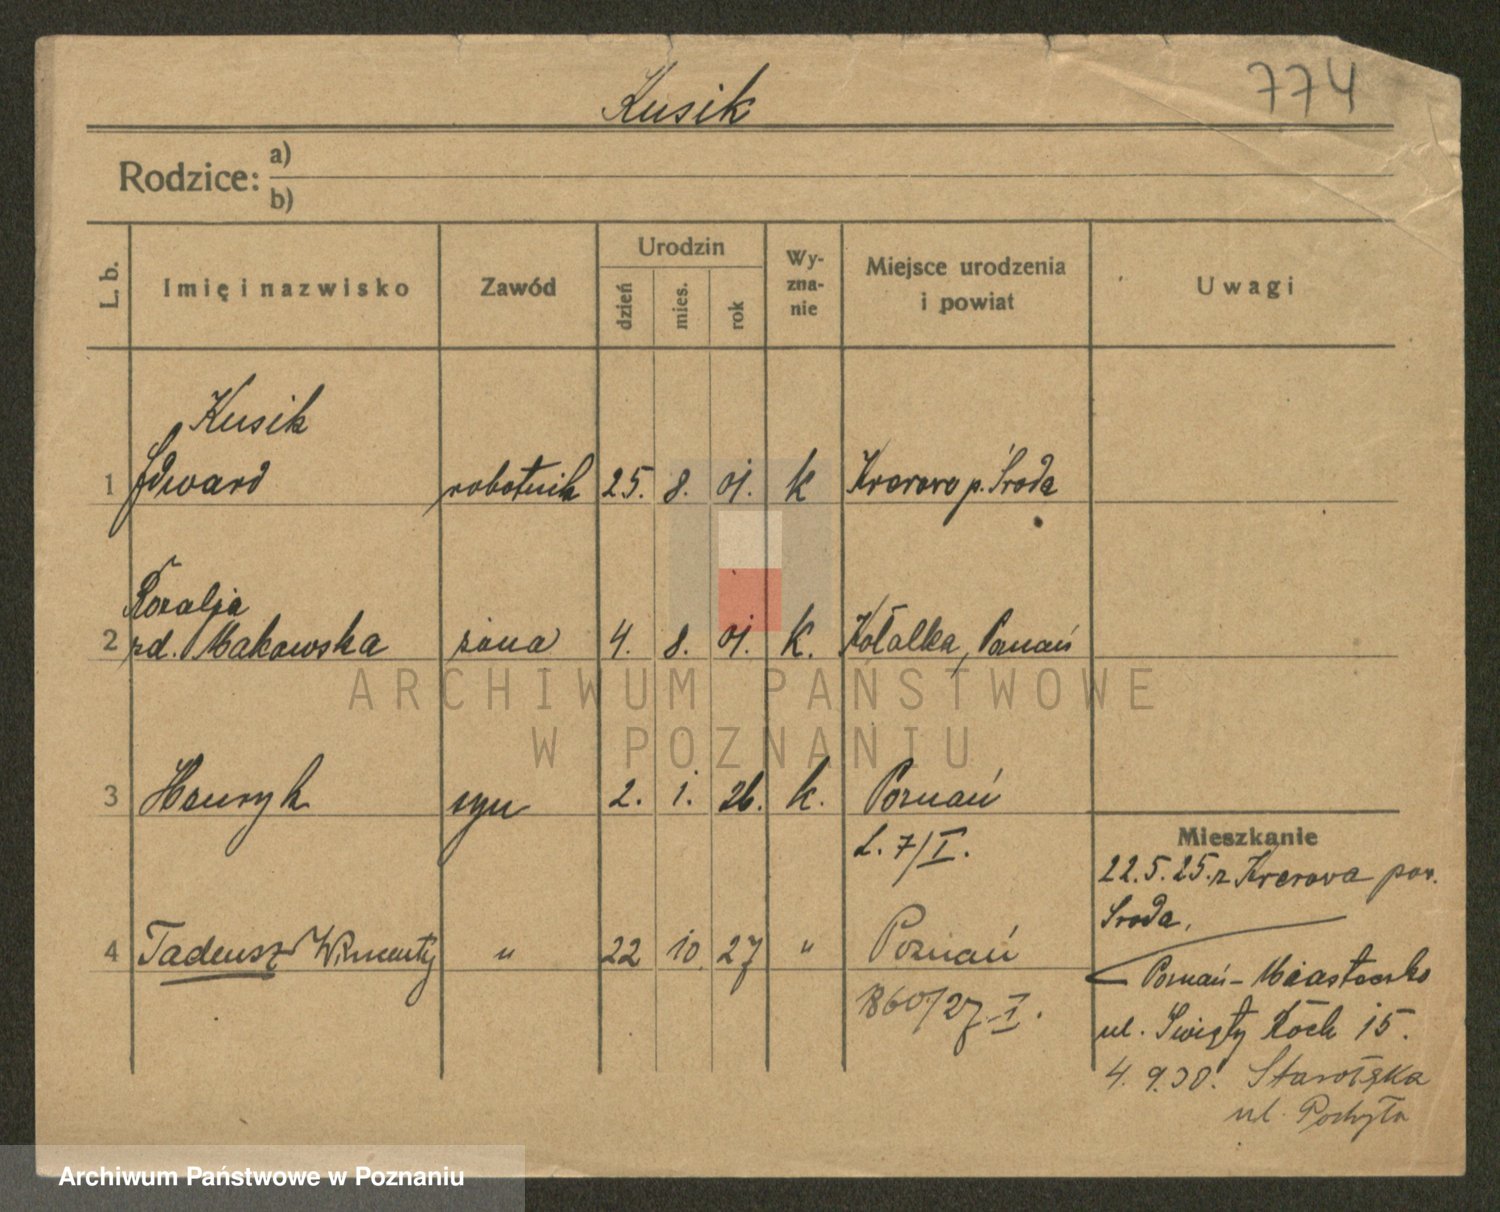 Kusik
774
Rodzice: a)
b)
L. b.
Imię i nazwisko
Zawód
Urodzin
dzień
mies.
rok
Wy-
zna-
nie
Miejsce urodzenia
i powiat
Uwagi
Kusik
1 Edward robotnik 25. 8. 01. k Krerowo p. Środa
Rozalja
2 zd. Makowska żona 4. 8. 01. k. Poznań
3 Henryk syn 2. 1. 26. k. Poznań
L. 7/I.
4 Tadeusz Wincenty " 22 10. 27 " Poznań
1860/27 I.
Mieszkanie
22.5.25. z Krerowa pow.
Środa.
Poznań - Miasteczko
ul. Święty Roch 15.
4. 9.30. Starołęka
ul. Pochyła
ARCHIWUM PAŃSTWOWE
W POZNANIU
Archiwum Państwowe w Poznaniu